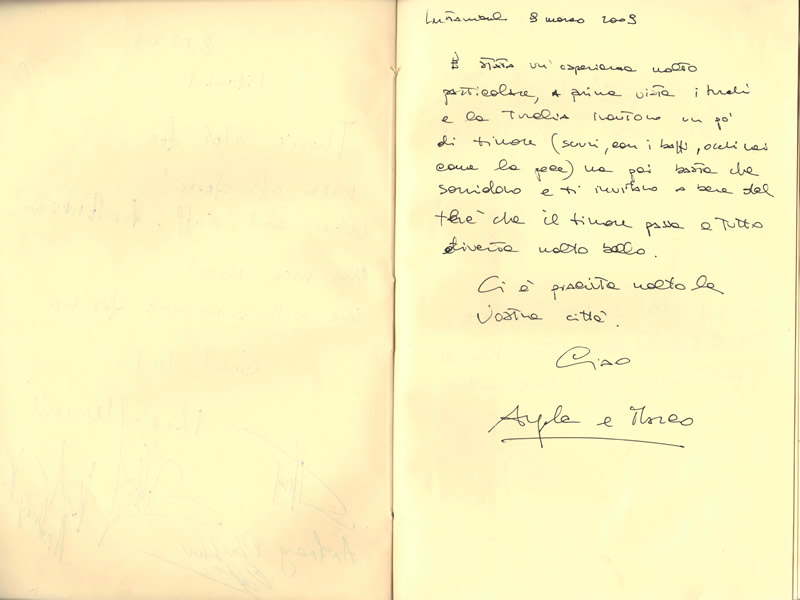 marzo 2009
È stata un'esperienza molto
particolare, a prima vista i turchi
e la Turchia incutono un pò
di timore (scuri, con i baffi, occhi neri
come la pece) ma poi basta che
sorridono e ti invitano a bere del
thè che il timore passa e tutto
diventa molto bello.
Ci è piaciuta molto la
vostra città.
Ciao
Angela e Marco